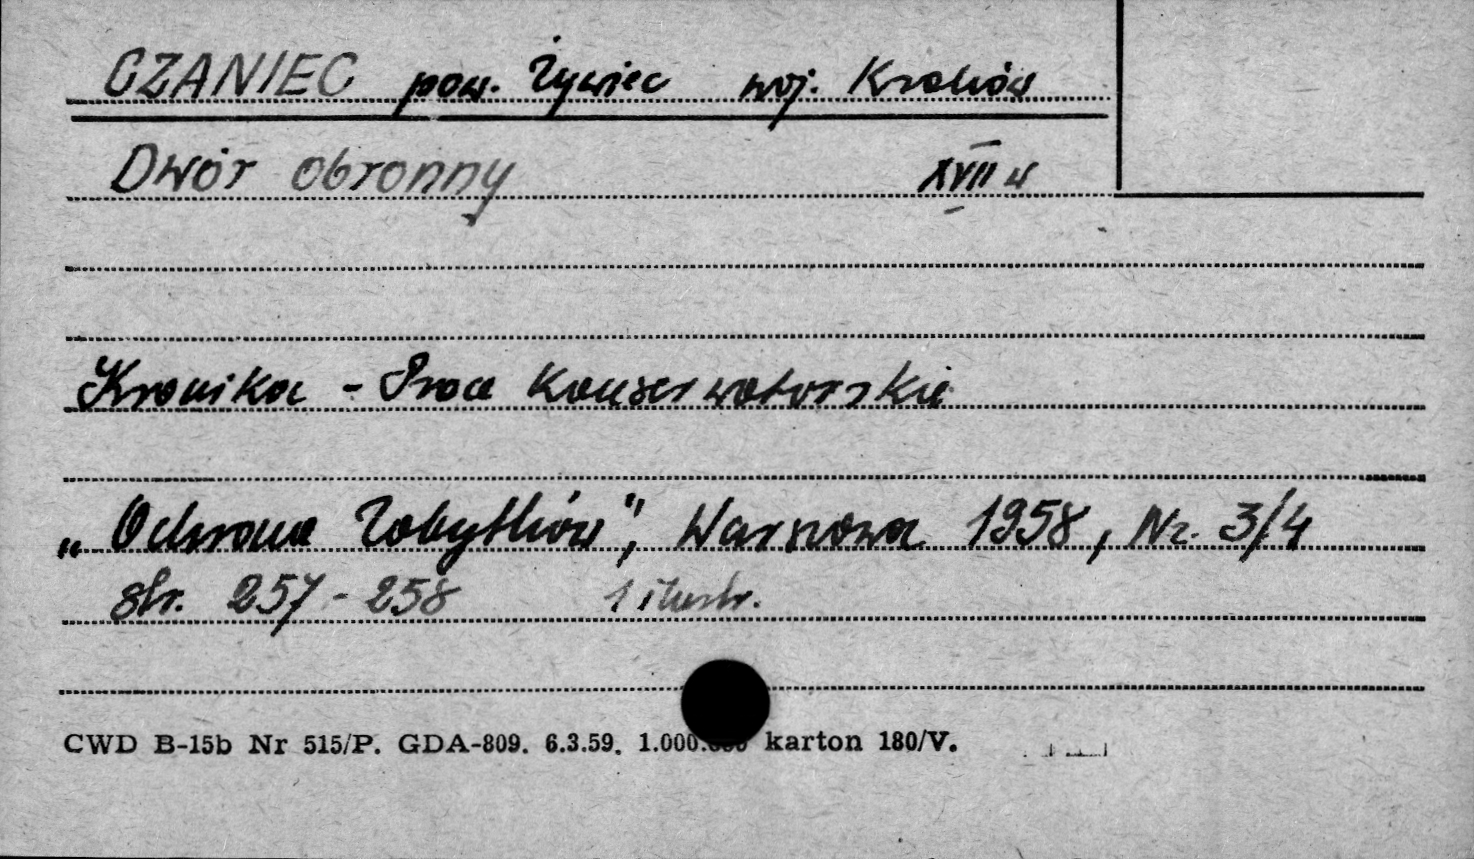 CZANIEC pow. Żywiec woj. Kraków
Dwór obronny XVII w
Kronika - Prace Konserwatorskie
„Ochrona Zabytków", Warszawa 1958, Nr. 3/4
str. 257-258 1 ilustr.
CWD B-15b Nr 515/P. GDA-809. 6.3.59. 1.000.000 karton 180/V.